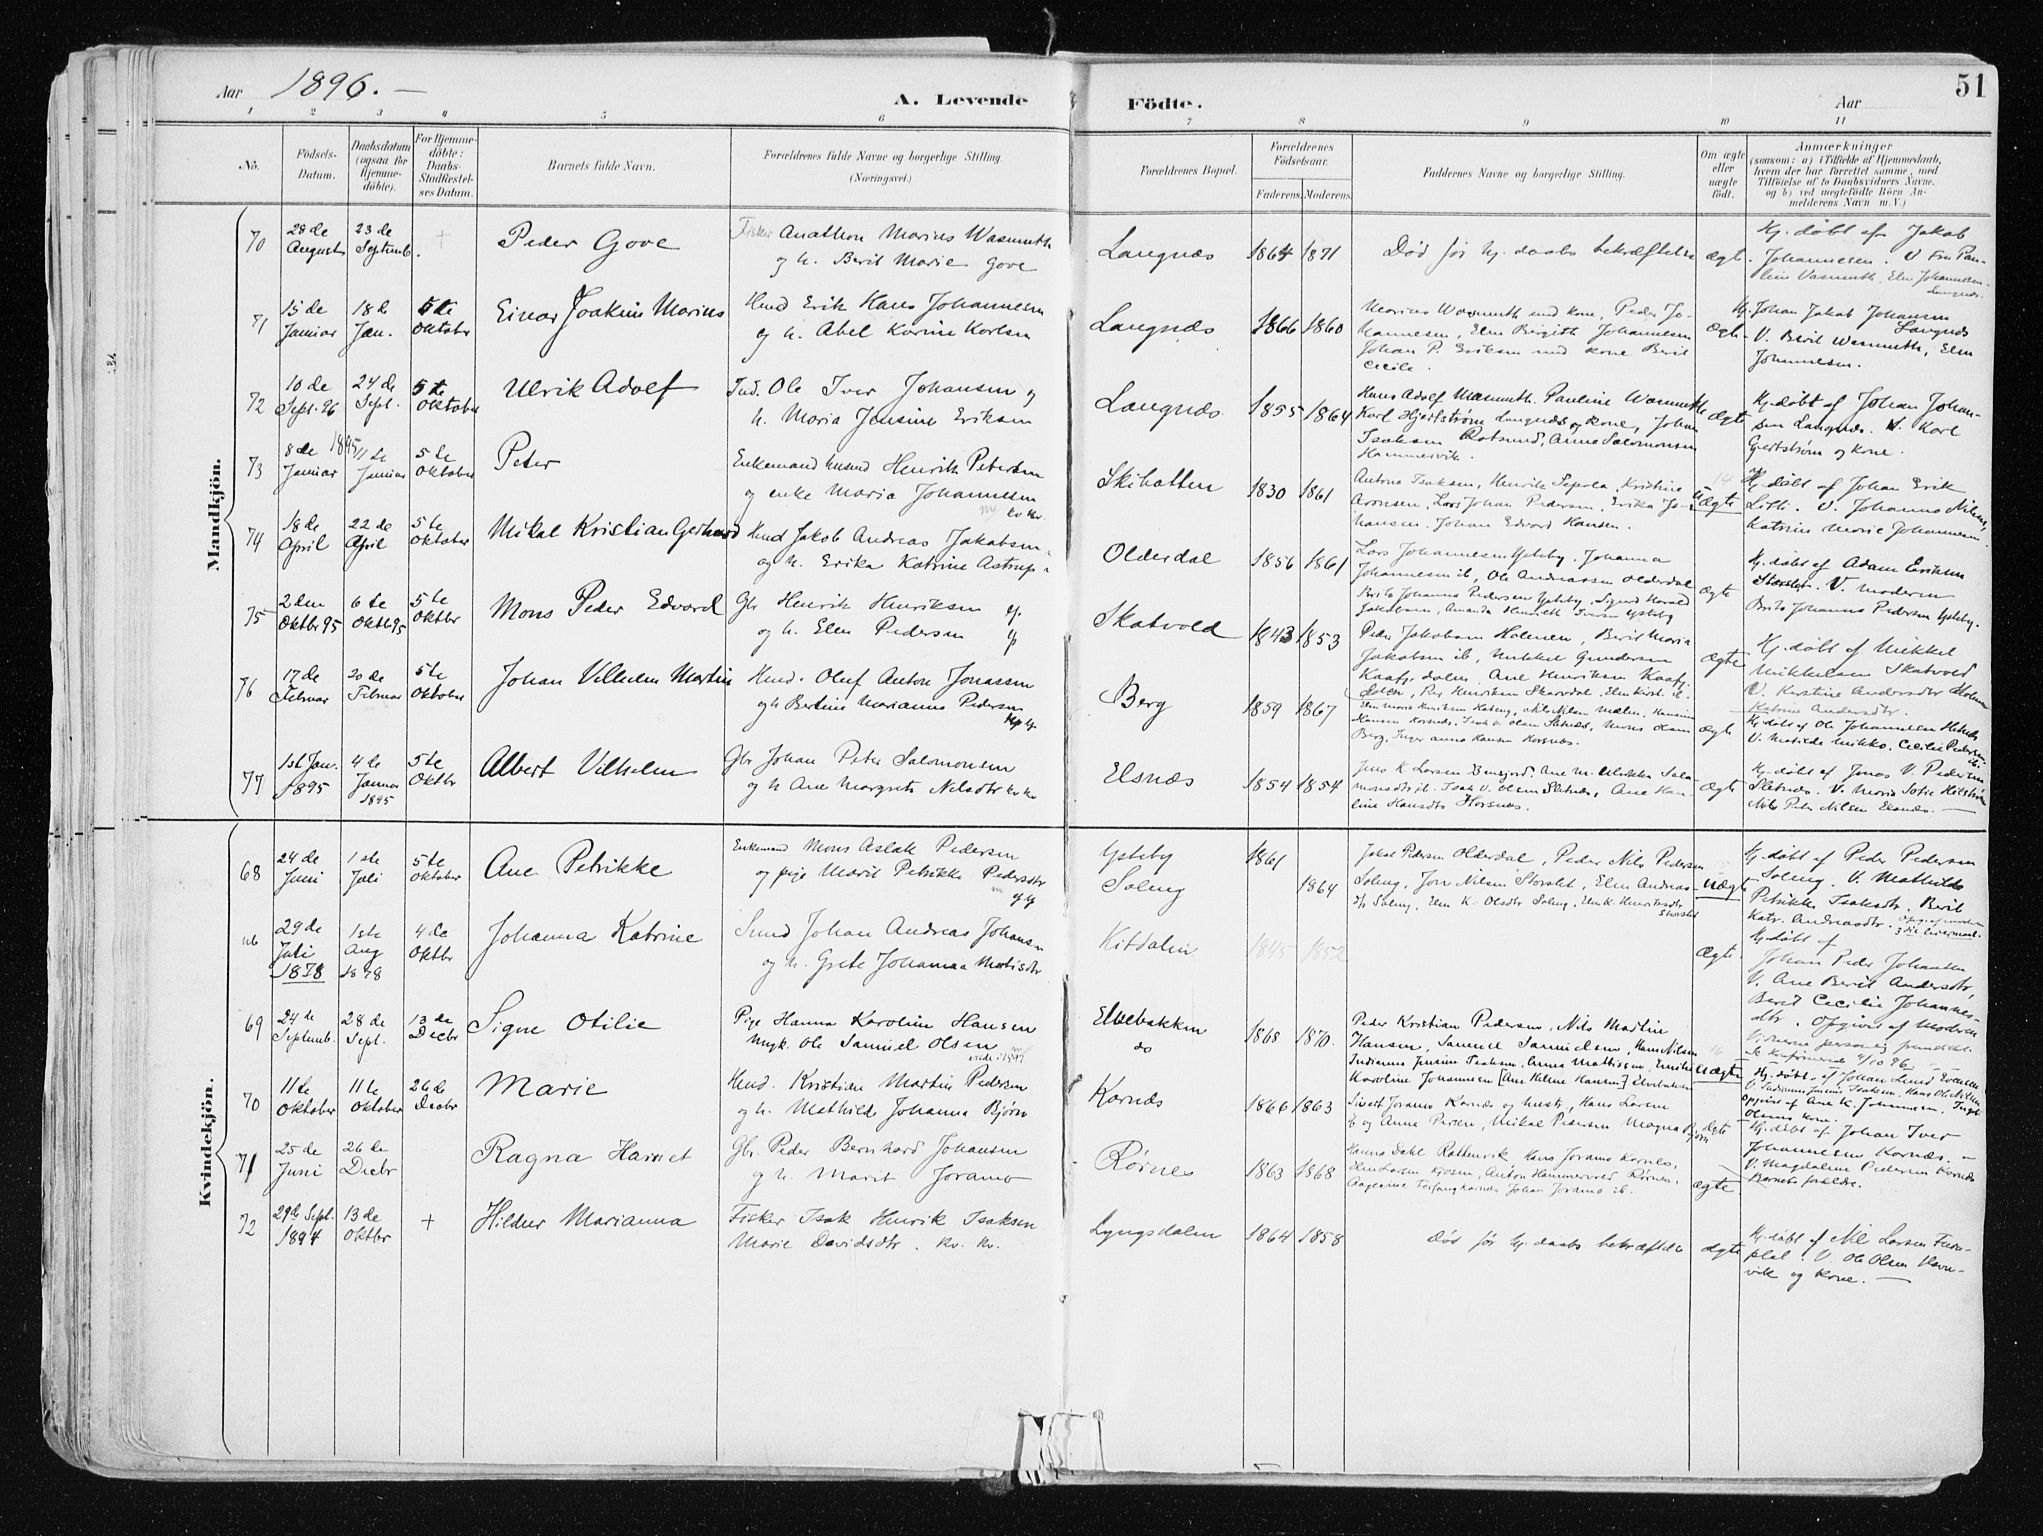 Aar 1896. —
A. Levende
Födte.
Aar
51
1 2 3 4 5 6 7 8 9 10 11
No.
Födsels-
Datum.
Daabsdatum
(ogsaa for
Hjemme-
döbte).
For Hjemme-
döbte:
Daabs-
Stadfæstel-
ses Datum.
Barnets fulde Navn.
Forældrenes fulde Navne og borgerlige Stilling.
(Næringsvei.)
Forældrenes Bopæl.
Forældrenes
Födselsaar.
Faderens. Moderens.
Faddernes Navne og borgerlige Stilling.
Om ægte
eller
uægte
födt.
Anmærkninger
(saasom: a) i Tilfælde af Hjemmedaab,
hvem der har forrettet samme, med
Tilföielse af to Daabsvidners Navne,
og b) ved uægtefödte Börn An-
melderens Navn m. V.)
Mandkjön.
70
28 de
August
23 de
Septemb.
+
Peder Gove
Fisker Anathon Marius Wasmuth
og h. Berit Marie Gove
Langnæs
1864 1871
Død før hj. daabs bekræftelse
ægt.
Hj. døbt af Jakob
Johannesen. V Fru Pau-
line Vasmuth, Elen Johannesen
Langnæs.
71
15 de
Januar
18 de
Jan.
5 te
Oktober
Einar Joakim Marius
Hmd Erik Hans Johannesen
og h. Abel Karine Karlsen
Langnæs
1866 1860
Marius Wasmuth med kone, Peder Jo-
hannesen, Elen Birgith Johannesen
Johan P. Eriksen med kone Berit
Cecilie.
ægte
Hj. Johan Jakob Johansen
Langnæs
V. Berit Wasmuth, Elen
Johannesen.
72
10 de
Sept. 96
24 de
Sept.
5 te
Oktober
Ulrik Adolf
Ind. Ole Iver Johansen og
h. Maria Jensine Eriksen
Langnæs
1855 1864
Hans Adolf Wasmuth. Pauline Wasmuth
Karl Hjertstrøm Langnæs og kone, Johan
Isaksen Rotsund, Anna Salomonsen
Hammervik.
ægte
Hj. døbt af Johan Johan-
sen Langnæs. V. Karl
Gjertstrøm og kone.
73
8 de 1895
Januar
11 te
Januar
5 te
Oktober
Peter
Enkemand husmd Henrik Petersen
og enke Maria Johannesen
kv. kv.
Skibotten
1830 1861
Antone Isaksen, Henrik Sepola, Kristine
Aronsen, Lars Johan Pedersen, Erika Jo-
hansen. Johan Edvard Hansen.
14
uægte
Hj. døbt af Johan Erik
Litti. V. Johanna Nilsen,
Katrine Marie Johannesen.
74
18 de
April
22 de
April
5 te
Oktober
Mikal Kristian Gerhard
Hmd Jakob Andreas Jakobsen
og h. Erika Katrine Astrup
Olderdal
1856 1861
Lars Johannesen Ysteby, Johanna
Johannesen ib, Ole Andreassen Olderdal
Brita Johanna Pedersen Ysteby, Sigurd Harald
Jakobsen, Amanda Henriette Iversen Ysteby
ægte
Hj. døbt af Adam Eriksen
Storslet. V. moderen
Brita Johanna Pedersen Ysteby.
75
2 den
Oktbr 95
6 te
Oktb 95
5 te
Oktbr
Mons Peder Edvard
Gbr Henrik Henriksen
og h. Elen Pedersen
Skatvold
1843 1853
Peder Jakobsen Holmen, Berit Maria
Jakobsen ib, Mikkel Gundersen
Kaafj. dalen, Ane Henriksen Kaafj.
dalen, Per Henriksen Skarsdal, Elen Kirst. ib.
ægte
Hj. døbt af Mikkel
Mikkelsen Skatvold
V. Kirstine Andersdtr Holmen
Katrine Andersdtr.
76
17 de
Februar
20 de
Februar
5te
Oktober
Johan Vilhelm Martin
Hmd. Oluf Anton Jonassen
og h Bertine Marianna Pedersen
Berg
1859 1867
Hansen Horsnes, Isak V. Olsen Sletnæs, Mons Olsen
Berg, Inger Anna Hansen Horsnæs.
ægte
Hj. døbt af Ole Johannesen Horsnæs
V. Matilde Mikko, Cecilie Pedersen
ib.
77
1ste Jan.
1895
4 de
Januar
1895
5te
Oktbr
Albert Vilhelm
Gbr Johan Peter Salomonsen
og h Ane Margrete Nilsdtr kv. kv.
Elsnæs
1854 1854
Jens K Larsen Bensjord, Ane M. Ulrikka Salo-
monsdtr ib. Isak V. Olsen Sletnæs, Ane Han-
sine Hansdtr Horsnæs.
ægte
Hj. døbt af Jonas V. Pedersen
Sletnæs. V. Maria Sofie Hilstrøm
Nils Peter Nilsen Elsnæs. —
Kvindekjön.
68
24 de
Juni
1 ste
Juli
5te
Oktober
Ane Petrikke
Enkemand Mons Aslak Pedersen
og pige Marit Petrikke Pedersdtr
Ysteby
Saleng
1861
1864
Jakob Pedersen Olderdal, Peder Nils Pedersen
Saleng, Jon Nilsen Storslet, Elen Andreas-
dtr Saleng, Elen K. Olsdtr Saleng, Elen K. Henriksdtr
Storslet
uægte
Hj. døbt af Peder Pedersen
Saleng. V. Mathilde
Petrikke Isaksdtr. Berit
Katr. Andreasdtr. Opg. af moderen
3die leiermaal.
nb
29 de
Juli
1878
1ste
Aug
1878
4 de
Oktbr
Johanna Katrine
Smd Johan Andreas Johansen
og h. Grete Johanna Matisdtr
Kitdalen
1845 1852
ægte.
Hj. døbt af
Johan Peder Johansen
V. Ane Berit Andersdtr,
Berit Cecilie Johannes-
dtr. Opgives af Moderen
69
24 de
Septemb.
28 de
Sept.
13 de
Decbr
Signe Otilie
Pige Hanna Karoline Hansen
Ungk. Ole Samuel Olsen
Elvebakken
do
1868 1870.
Peder Kristian Pedersen, Nils Martin
Hansen, Samuel Samuelsen, Hans Nilsen
Indianna Jensine Isaksen, Anna Mathissen, Emilie
Karoline Johannesen [Ane Helene Hansen] Elvebakken
16
uægte
Hj. døbt. af Johan Lund Evensen
V. Indianna Jensine Isaksen, Hans Ole Nilsen
Opgives af Ane K. Johannesen, Ingeb.
Olsens kone.
70
11 te
Oktober
11 te
Oktober
26 de
Decbr
Marie
Hmd. Kristian Martin Pedersen
og h. Mathilde Johanna Bjørn
Karnæs
1866 1863
Sivert Joramo Karnæs og hustr, Hans Larsen
ib og Anna Persen, Mikal Pedersen Magna Bjørn
ægte
Hj. døbt af Johan Iver
Johannesen Karnæs. —
V. Magdalene Pedersen Karnæs
Barnets forældre.
71
25 de
Juni
26 de
Decbr
Ragna Harriet
Gbr. Peder Bernhard Johansen
og h. Marit Joramo
Rørnes
1863 1868
Hanna Dahl Rottenvik, Hans Joramo Karnes,
Elen Larsen Kjosen, Anton Hammervold Rørnes,
Aagesine Forfang Karnæs Johan Joramo ib.
ægte
72
29de Sept.
1894
13 de
Oktbr
+
Hildur Marianna
Fisker Isak Henrik Isaksen
Marie Davidsdtr. kv. kv.
Lyngsdalen
1864 1858
Død før hj. daabs bekræftelse
ægte
Hj. døbt af Nil Larsen Furu-
plat. V. Ole Olsen Havn-
vik og kone. —